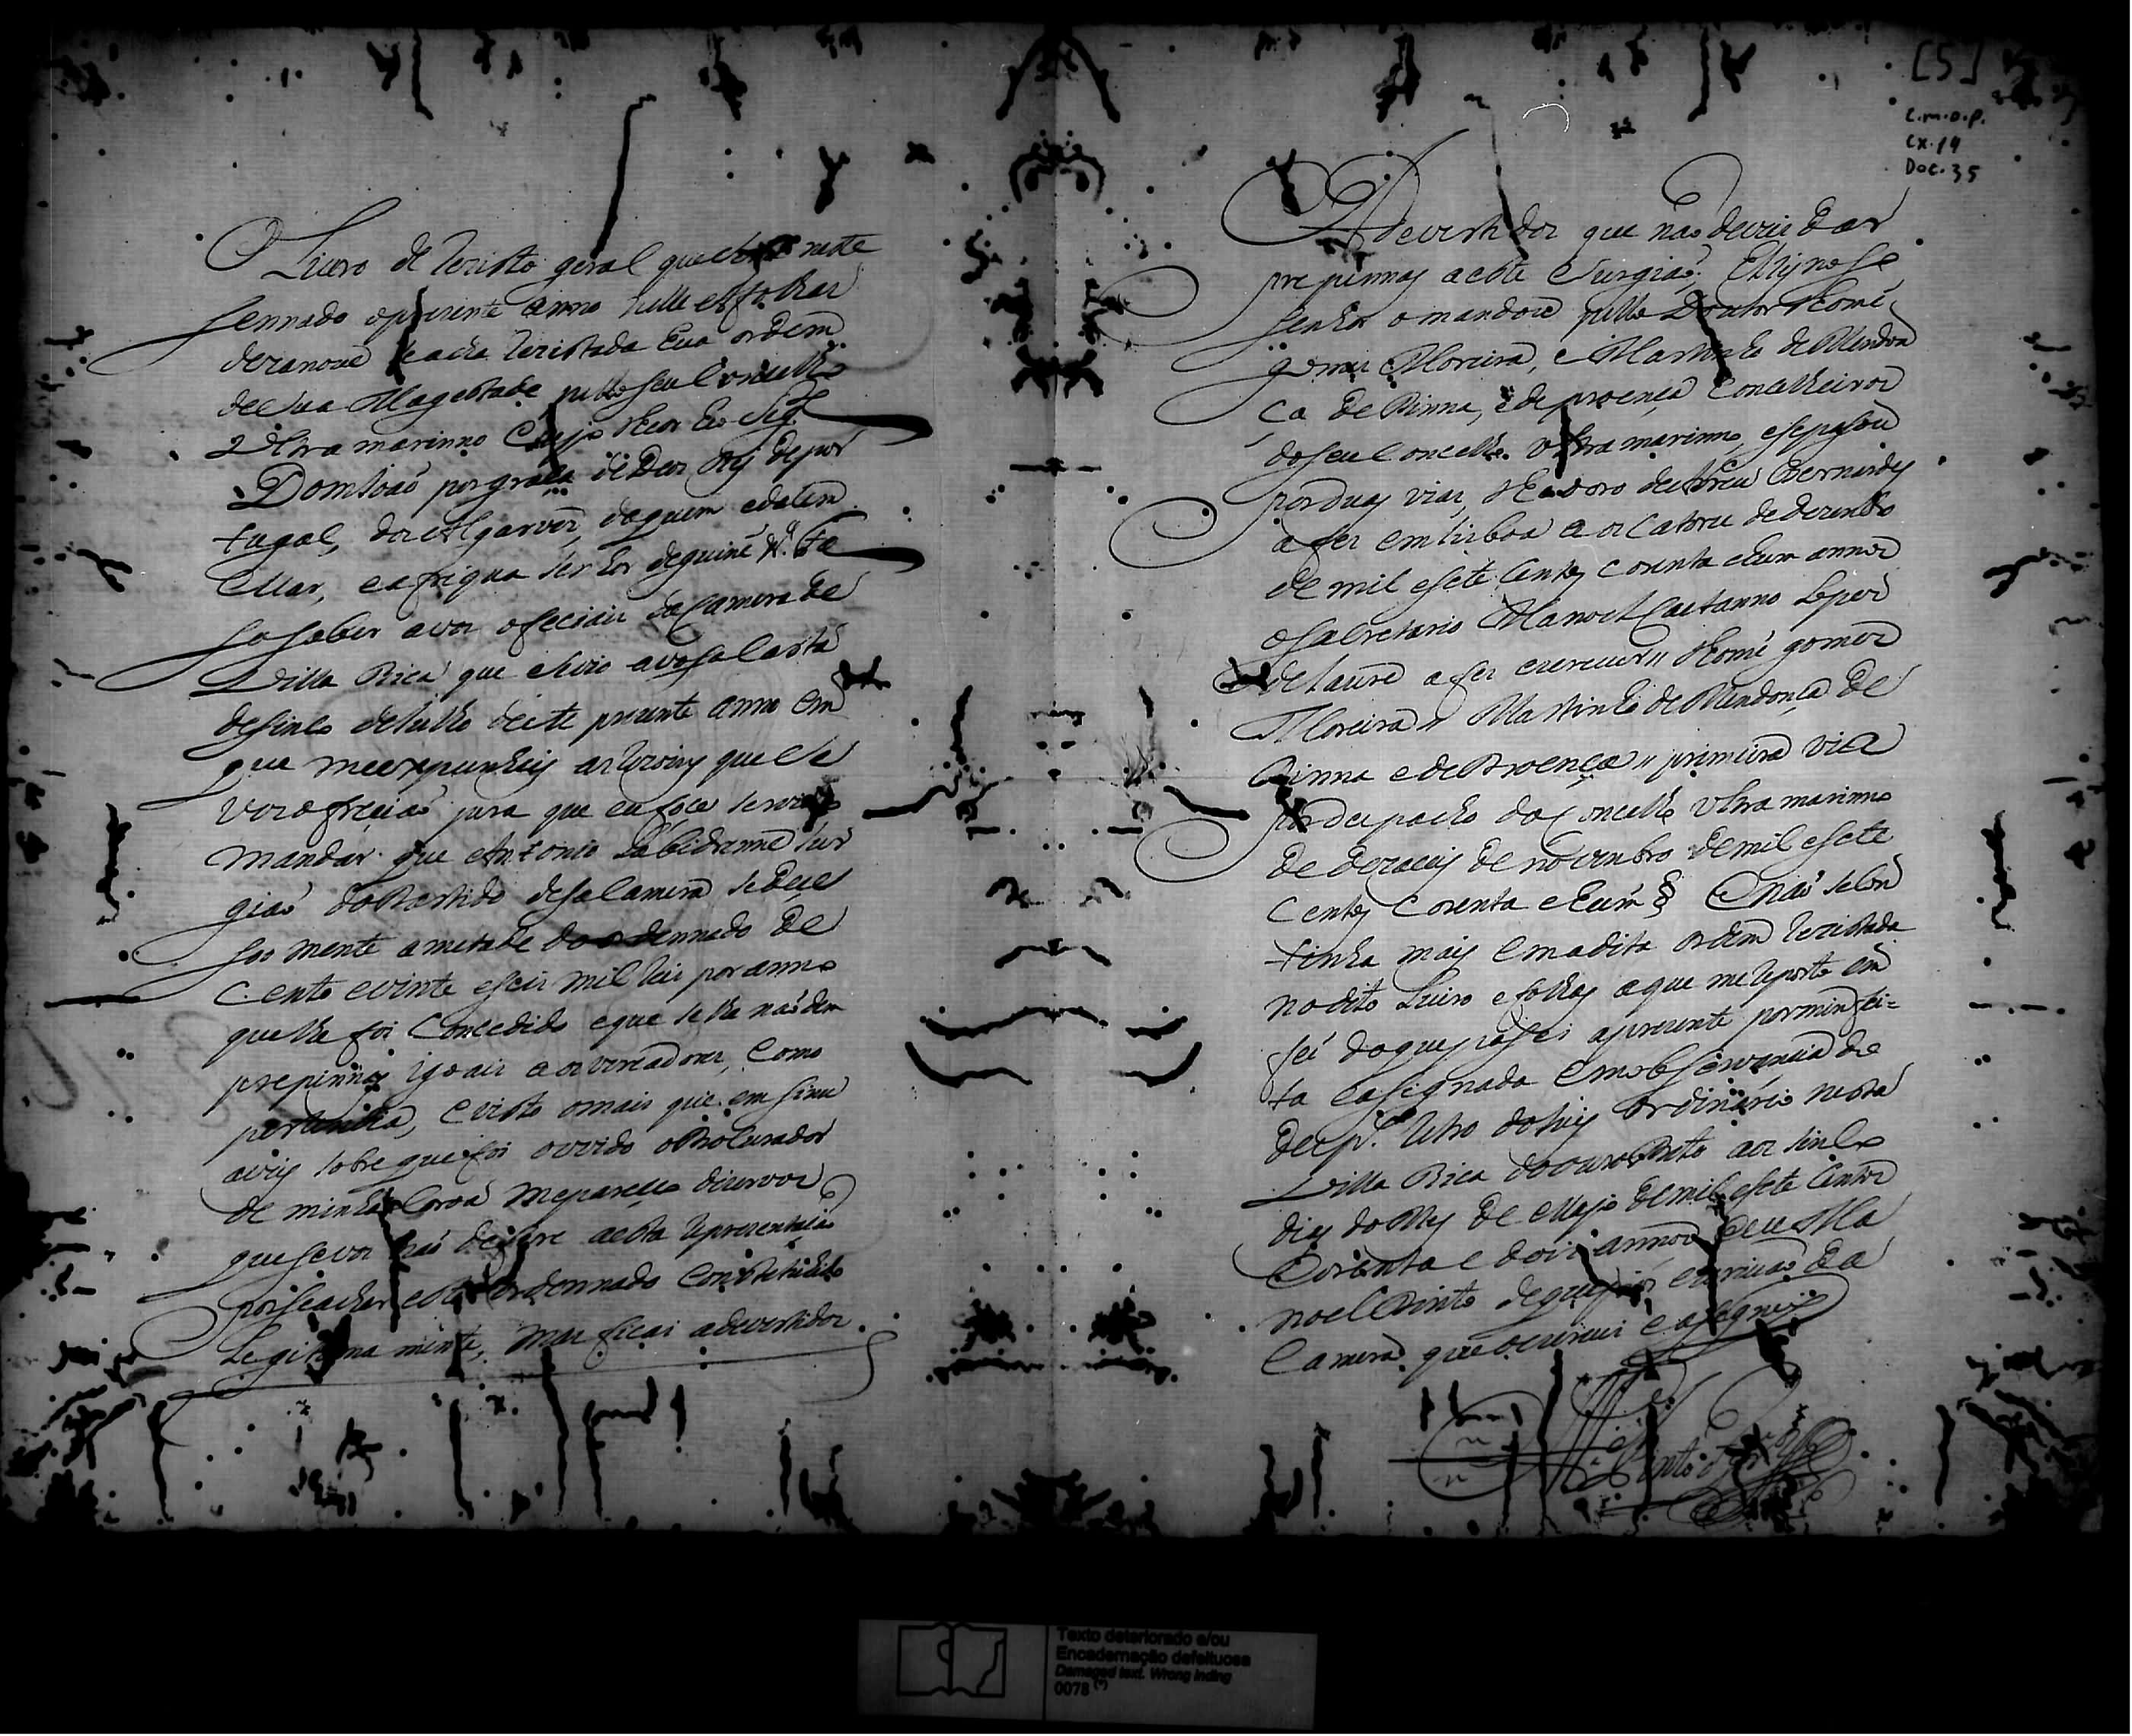 O Livro de Rezisto geral que serve neste
sennado o prezente anno nelle as folhas
dezanove se acha Rezistada hua ordem
de Sua Magestade pello seu Concelho
Ultra marinno Cujo theor he o Seg.te
Dom João por graça de Deos Rey de por
tugal, dos Algarves, daquem e dalem
Mar, em africa senhor de guine &.a Fa
ço saber a vos ofeciais da Camera de
Villa Rica que se vio a vosa Carta
de sinco de Julho deste prezente anno em
que me expunheis as Rezois que ese
vos oferecião para que eu foce servido
mandar que Antonio Labedrenne Sur
gião do Partido desa Camera se dece
so mente ametade do ordennado de
Cento e vinte e seis mil reis por anno
que lhe foi Concedido e que se lhe não dem
prepinnas igoais aos vereadores, Como
pertendia, e visto o mais que em sima
aveis sobre que foi ouvido o Procurador
de minha Coroa me pareceo dizervos
que se vos não defere a esta representação
por se achar este ordennado Constetuhido
Legitima mente, mas ficai adevertidos
Adevertidos que não deveis dar
prepinnas a este Surgião. ElRey noso
senhor o mandou pello Doutor Thome
gomes Moreira, e Martinho de Mendon
ça de Pinna, e de proença Concelheiros
do seu Concelho Ultra marinno, e se pasou
por duas vias, Theodoro de Abreu Bernardes
a fes em lixboa aos Catorze de dezembro
de mil e sete Centos Corenta e hum annos
o Sacretario Manoel Caetanno Lopes
de Lavre a fes escrever // Thome gomes
Moreira // Martinho de Mendonça de
Pinna e de Proença // primeira via
por despacho do Concelho Ultra marinno
de dezaceis de novembro de mil e sete
Centos Corenta e hum § E não se Con
tinha mais em a dita ordem Rezistada
no dito Livro e folhas a que me reporto em
fé do que pasei a prezente por mim fei=
ta e asignada em observancia do
desp.o retro do Juis ordinario nesta
Villa Rica do ouro Preto aos sinco
dias do Mes de Mayo de mil e sete Centos
Corenta e dois annos E eu Ma
noel Pinto de queirós escrivão da
Camera que o escrevi e asegnei
[5]
C.M.O.P.
CX.14
DOC.35
Texto deteriorado e/ou
Encadernação defeituosa
Damaged text. Wrong inding
0078 (*)